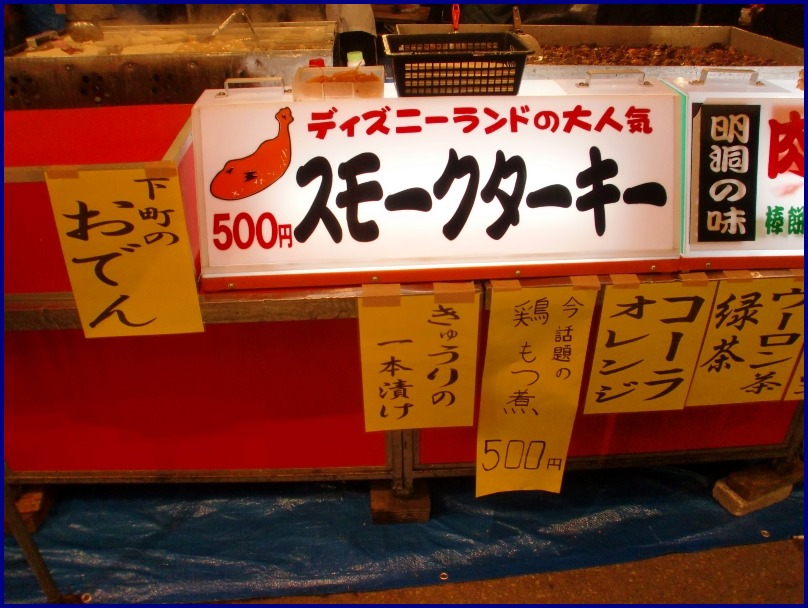 ディズニーランドの大人気
スモークターキー
500円
明洞の味
肉
棒餅
下町の
おでん
きゅうりの
一本漬け
今話題の
鶏もつ煮
500円
コーラ
オレンジ
ウーロン茶
緑茶